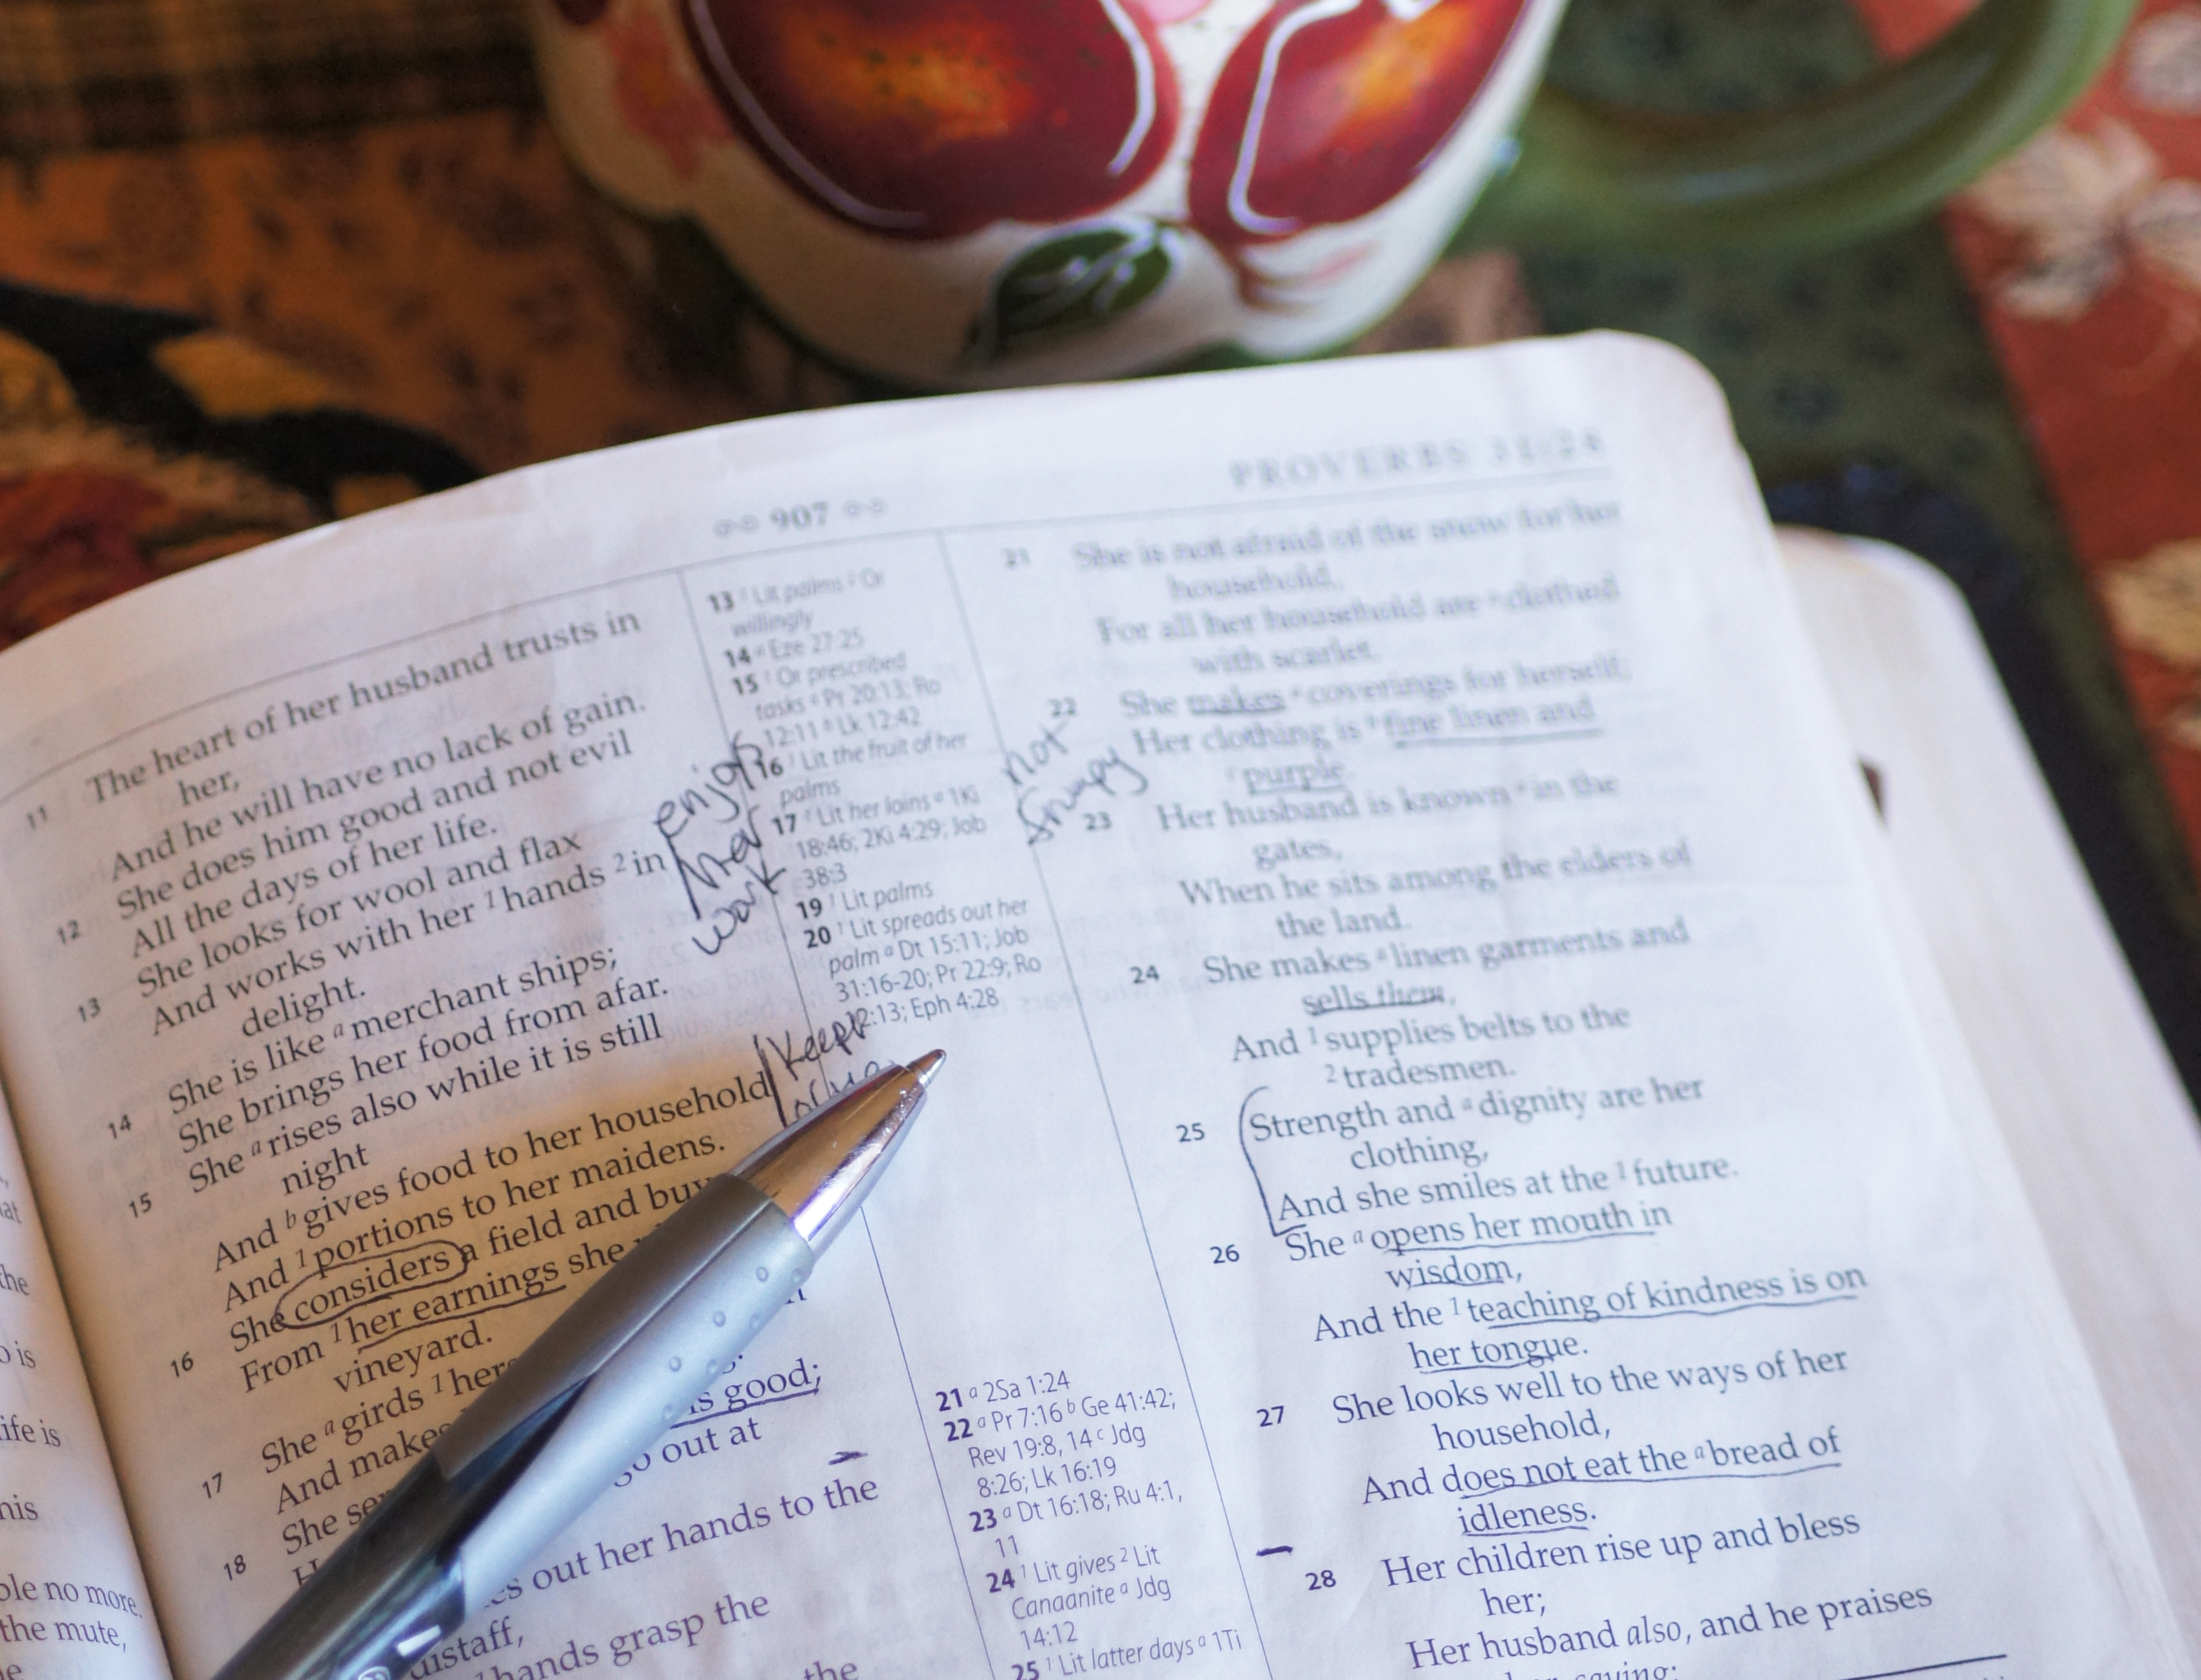 PROVERBS 31:24
907
11 The heart of her husband trusts in
her,
And he will have no lack of gain.
12 She does him good and not evil
All the days of her life.
13 She looks for wool and flax
And works with her 1 hands 2 in
delight.
14 She is like a merchant ships;
She brings her food from afar.
15 She a rises also while it is still
night
And b gives food to her household
And 1 portions to her maidens.
16 She considers a field and buy
From 1 her earnings she
vineyard.
17 She a girds 1 her
And makes
18 She
is good;
go out at
out her hands to the
distaff,
hands grasp the
the
enjoys
her
work
Keeps
13 1 Lit palms 2 Or
willingly
14 a Eze 27:25
15 1 Or prescribed
tasks a Pr 20:13; Ro
12:11 b Lk 12:42
16 1 Lit the fruit of her
palms
17 1 Lit her loins a 1Ki
18:46; 2Ki 4:29; Job
38:3
19 1 Lit palms
20 1 Lit spreads out her
palm a Dt 15:11; Job
31:16-20; Pr 22:9; Ro
12:13; Eph 4:28
21 a 2Sa 1:24
22 a Pr 7:16 b Ge 41:42;
Rev 19:8, 14 c Jdg
8:26; Lk 16:19
23 a Dt 16:18; Ru 4:1,
11
24 1 Lit gives 2 Lit
Canaanite a Jdg
14:12
25 1 Lit latter days a 1Ti
not
frumpy
21 She is not afraid of the snow for her
household,
For all her household are a clothed
with scarlet.
22 She makes a coverings for herself;
Her clothing is b fine linen and
c purple.
23 Her husband is known a in the
gates,
When he sits among the elders of
the land.
24 She makes a linen garments and
sells them,
And 1 supplies belts to the
2 tradesmen.
25 Strength and a dignity are her
clothing,
And she smiles at the 1 future.
26 She a opens her mouth in
wisdom,
And the 1 teaching of kindness is on
her tongue.
27 She looks well to the ways of her
household,
And does not eat the a bread of
idleness.
28 Her children rise up and bless
her;
Her husband also, and he praises
her, saying:
at
the
o is
ife is
his
ble no more.
the mute,